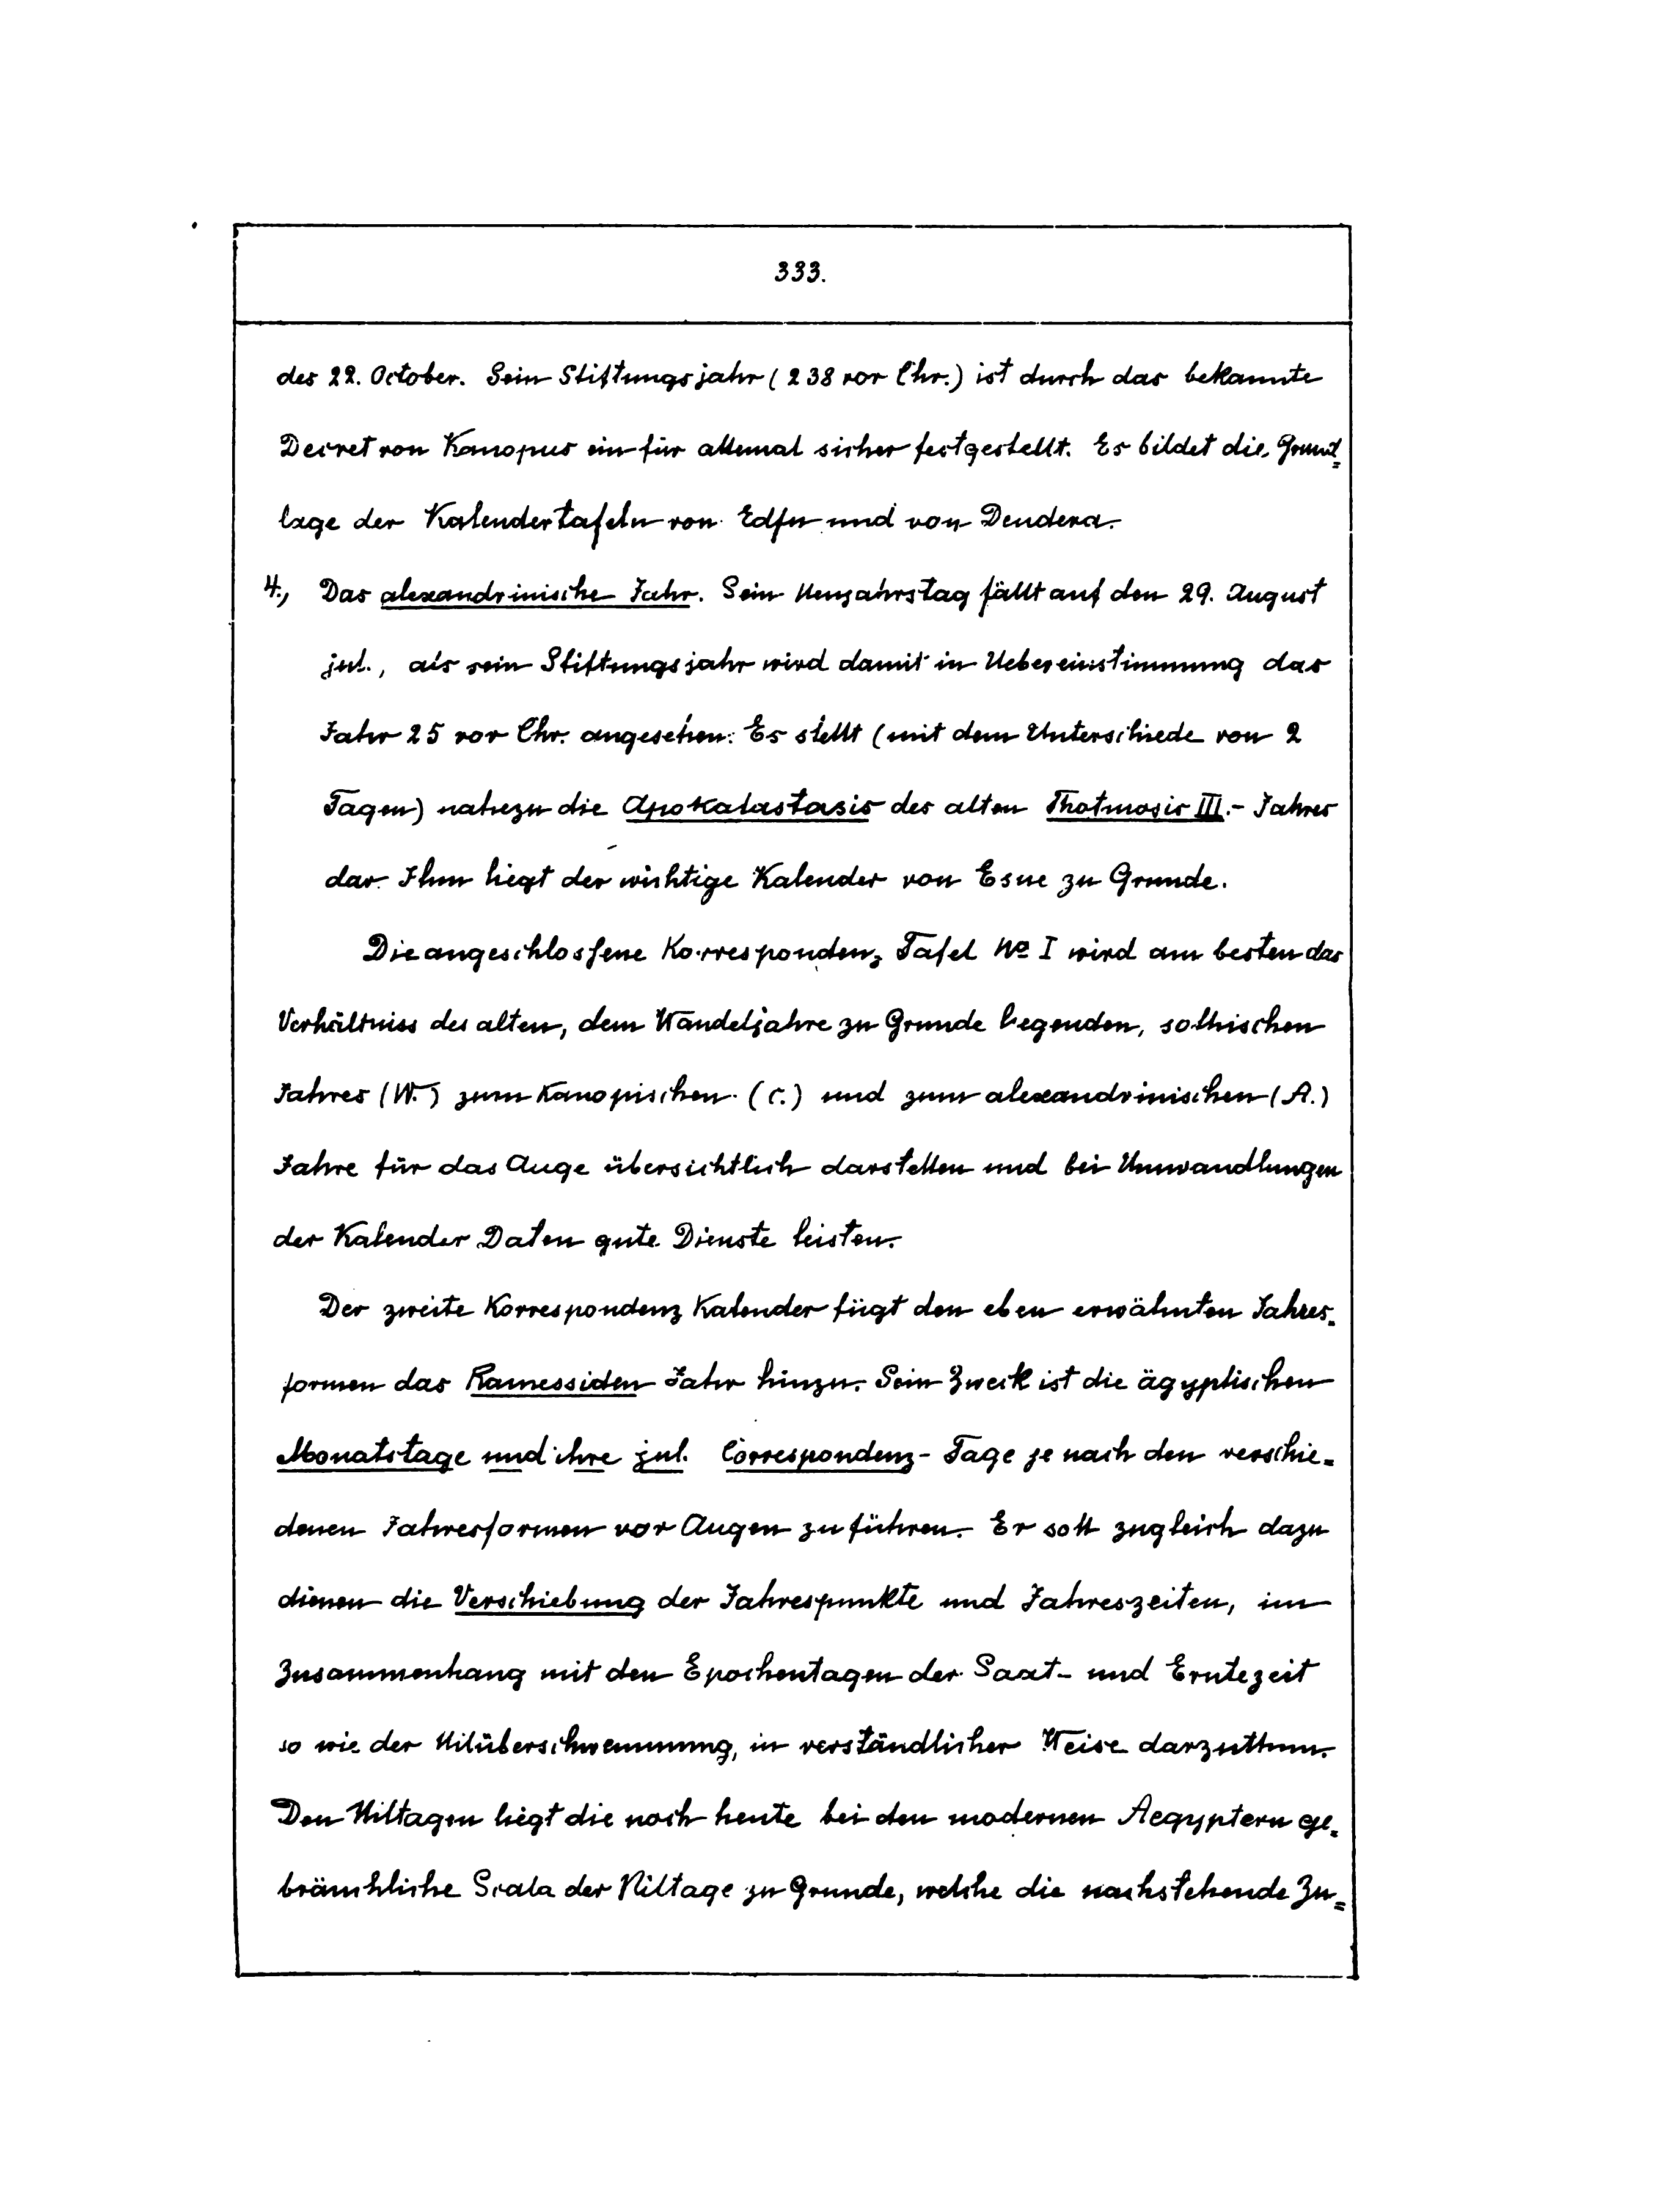 333.
des 22. October. Sein Stiftungsjahr (238 vor Chr.) ist durch das bekannte
Decret von Kanopus ein für allemal sicher festgestellt. Es bildet die Grund=
lage der Kalendertafeln von Edfu und von Dendera.
4., Das alexandrinische Jahr. Sein Neujahrstag fällt auf den 29. August
jul., als sein Stiftungsjahr wird damit in Uebereinstimmung das
Jahr 25 vor Chr. angesehen. Es stellt (mit dem Unterschiede von 2
Tagen) nahezu die Apokatastasis des alten Thotmosis III.- Jahres
dar. Ihm liegt der wichtige Kalender von Esne zu Grunde.
Die angeschlossene Korrespondenz Tafel No I wird am besten das
Verhältniss des alten, dem Wandeljahre zu Grunde liegenden, sothischen
Jahres (W.) zum Kanopischen (C.) und zum alexandrinischen (A.)
Jahre für das Auge übersichtlich darstellen und bei Umwandlungen
der Kalender Daten gute Dienste leisten.
Der zweite Korrespondenz Kalender fügt den eben erwähnten Jahres=
formen das Ramessiden Jahr hinzu. Sein Zweck ist die ägyptischen
Monatstage und ihre jul. Correspondenz- Tage je nach den verschie=
denen Jahresformen vor Augen zu führen. Er soll zugleich dazu
dienen die Verschiebung der Jahrespunkte und Jahreszeiten, im
Zusammenhang mit den Epochentagen der Saat- und Erntezeit
so wie der Nilüberschwemmung, in verständlicher Weise darzuthun.
Den Niltagen liegt die noch heute bei den modernen Aegyptern ge=
bräuchliche Scala der Niltage zu Grunde, welche die nachstehende Zu=